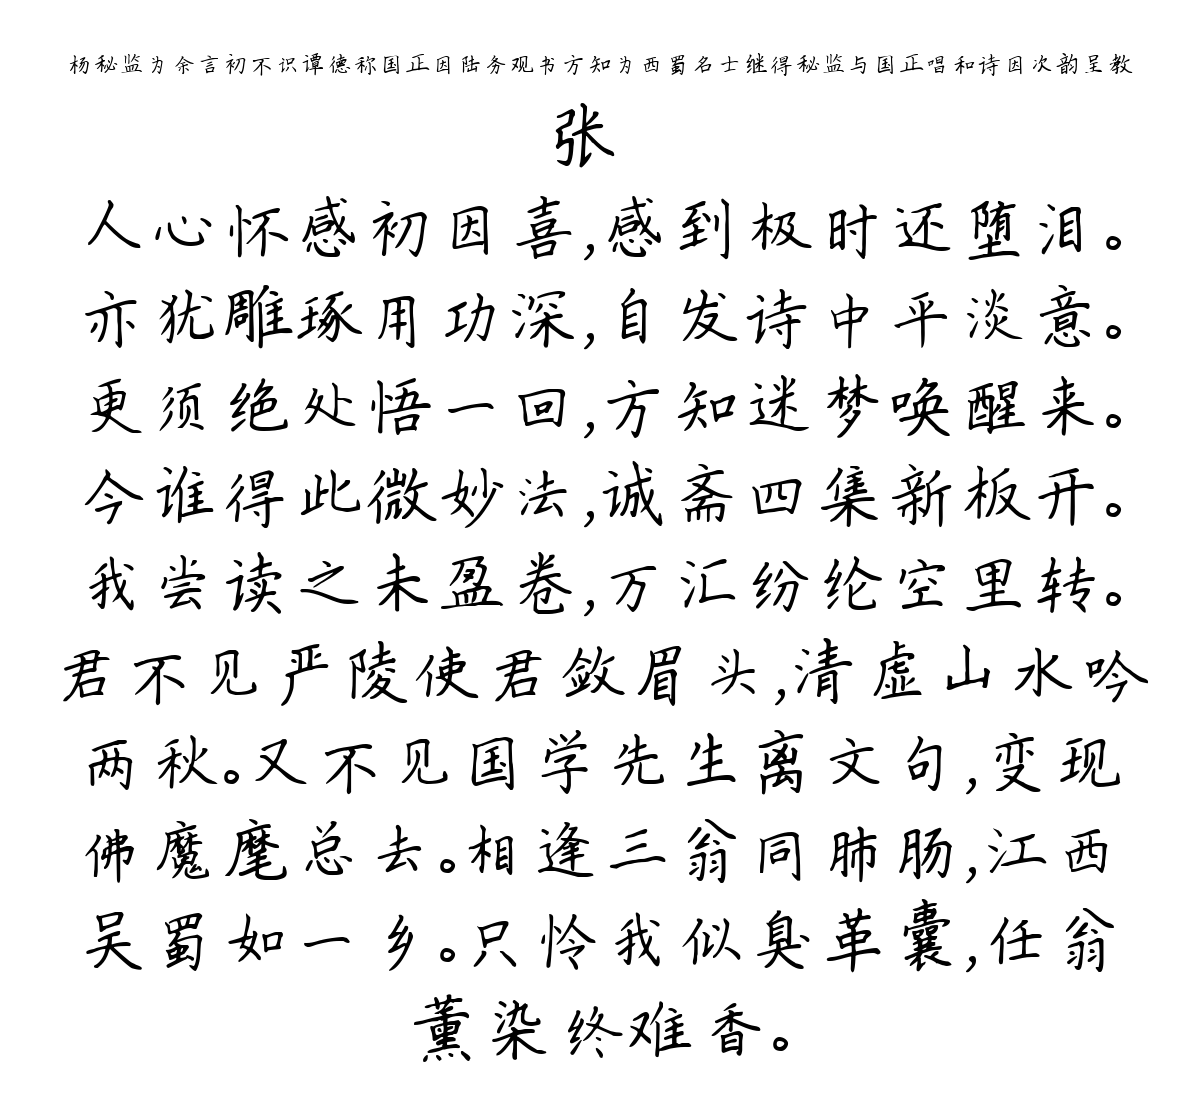 杨秘监为余言初不识谭德称国正因陆务观书方知为西蜀名士继得秘监与国正唱和诗因次韵呈教
张
人心怀感初因喜,感到极时还堕泪。
亦犹雕琢用功深,自发诗中平淡意。
更须绝处悟一回,方知迷梦唤醒来。
今谁得此微妙法,诚斋四集新板开。
我尝读之未盈卷,万汇纷纶空里转。
君不见严陵使君敛眉头,清虚山水吟
两秋。又不见国学先生离文句,变现
佛魔麾总去。相逢三翁同肺肠,江西
吴蜀如一乡。只怜我似臭革囊,任翁
薰染终难香。